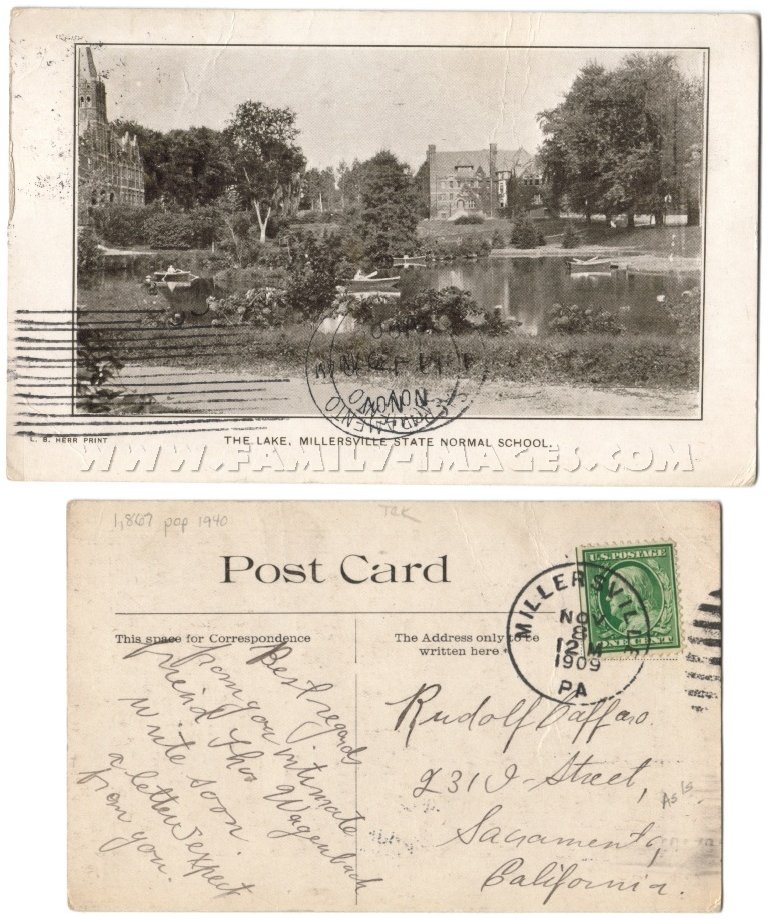 SACRAMENTO
NOV
L. B. HERR PRINT
THE LAKE, MILLERSVILLE STATE NORMAL SCHOOL.
WWW.FAMILY-IMAGES.COM
1,867 pop 1940
Post Card
U.S. POSTAGE
ONE CENT
MILLERSVILLE
NOV
8
12 M
1909
PA
This space for Correspondence
The Address only to be
written here
Best regards
from you intimate
friend Wagenback
write soon
a letter expect
from you.
Rudolf Caffaro.
231 Street,
Sacramento,
California.
As Is